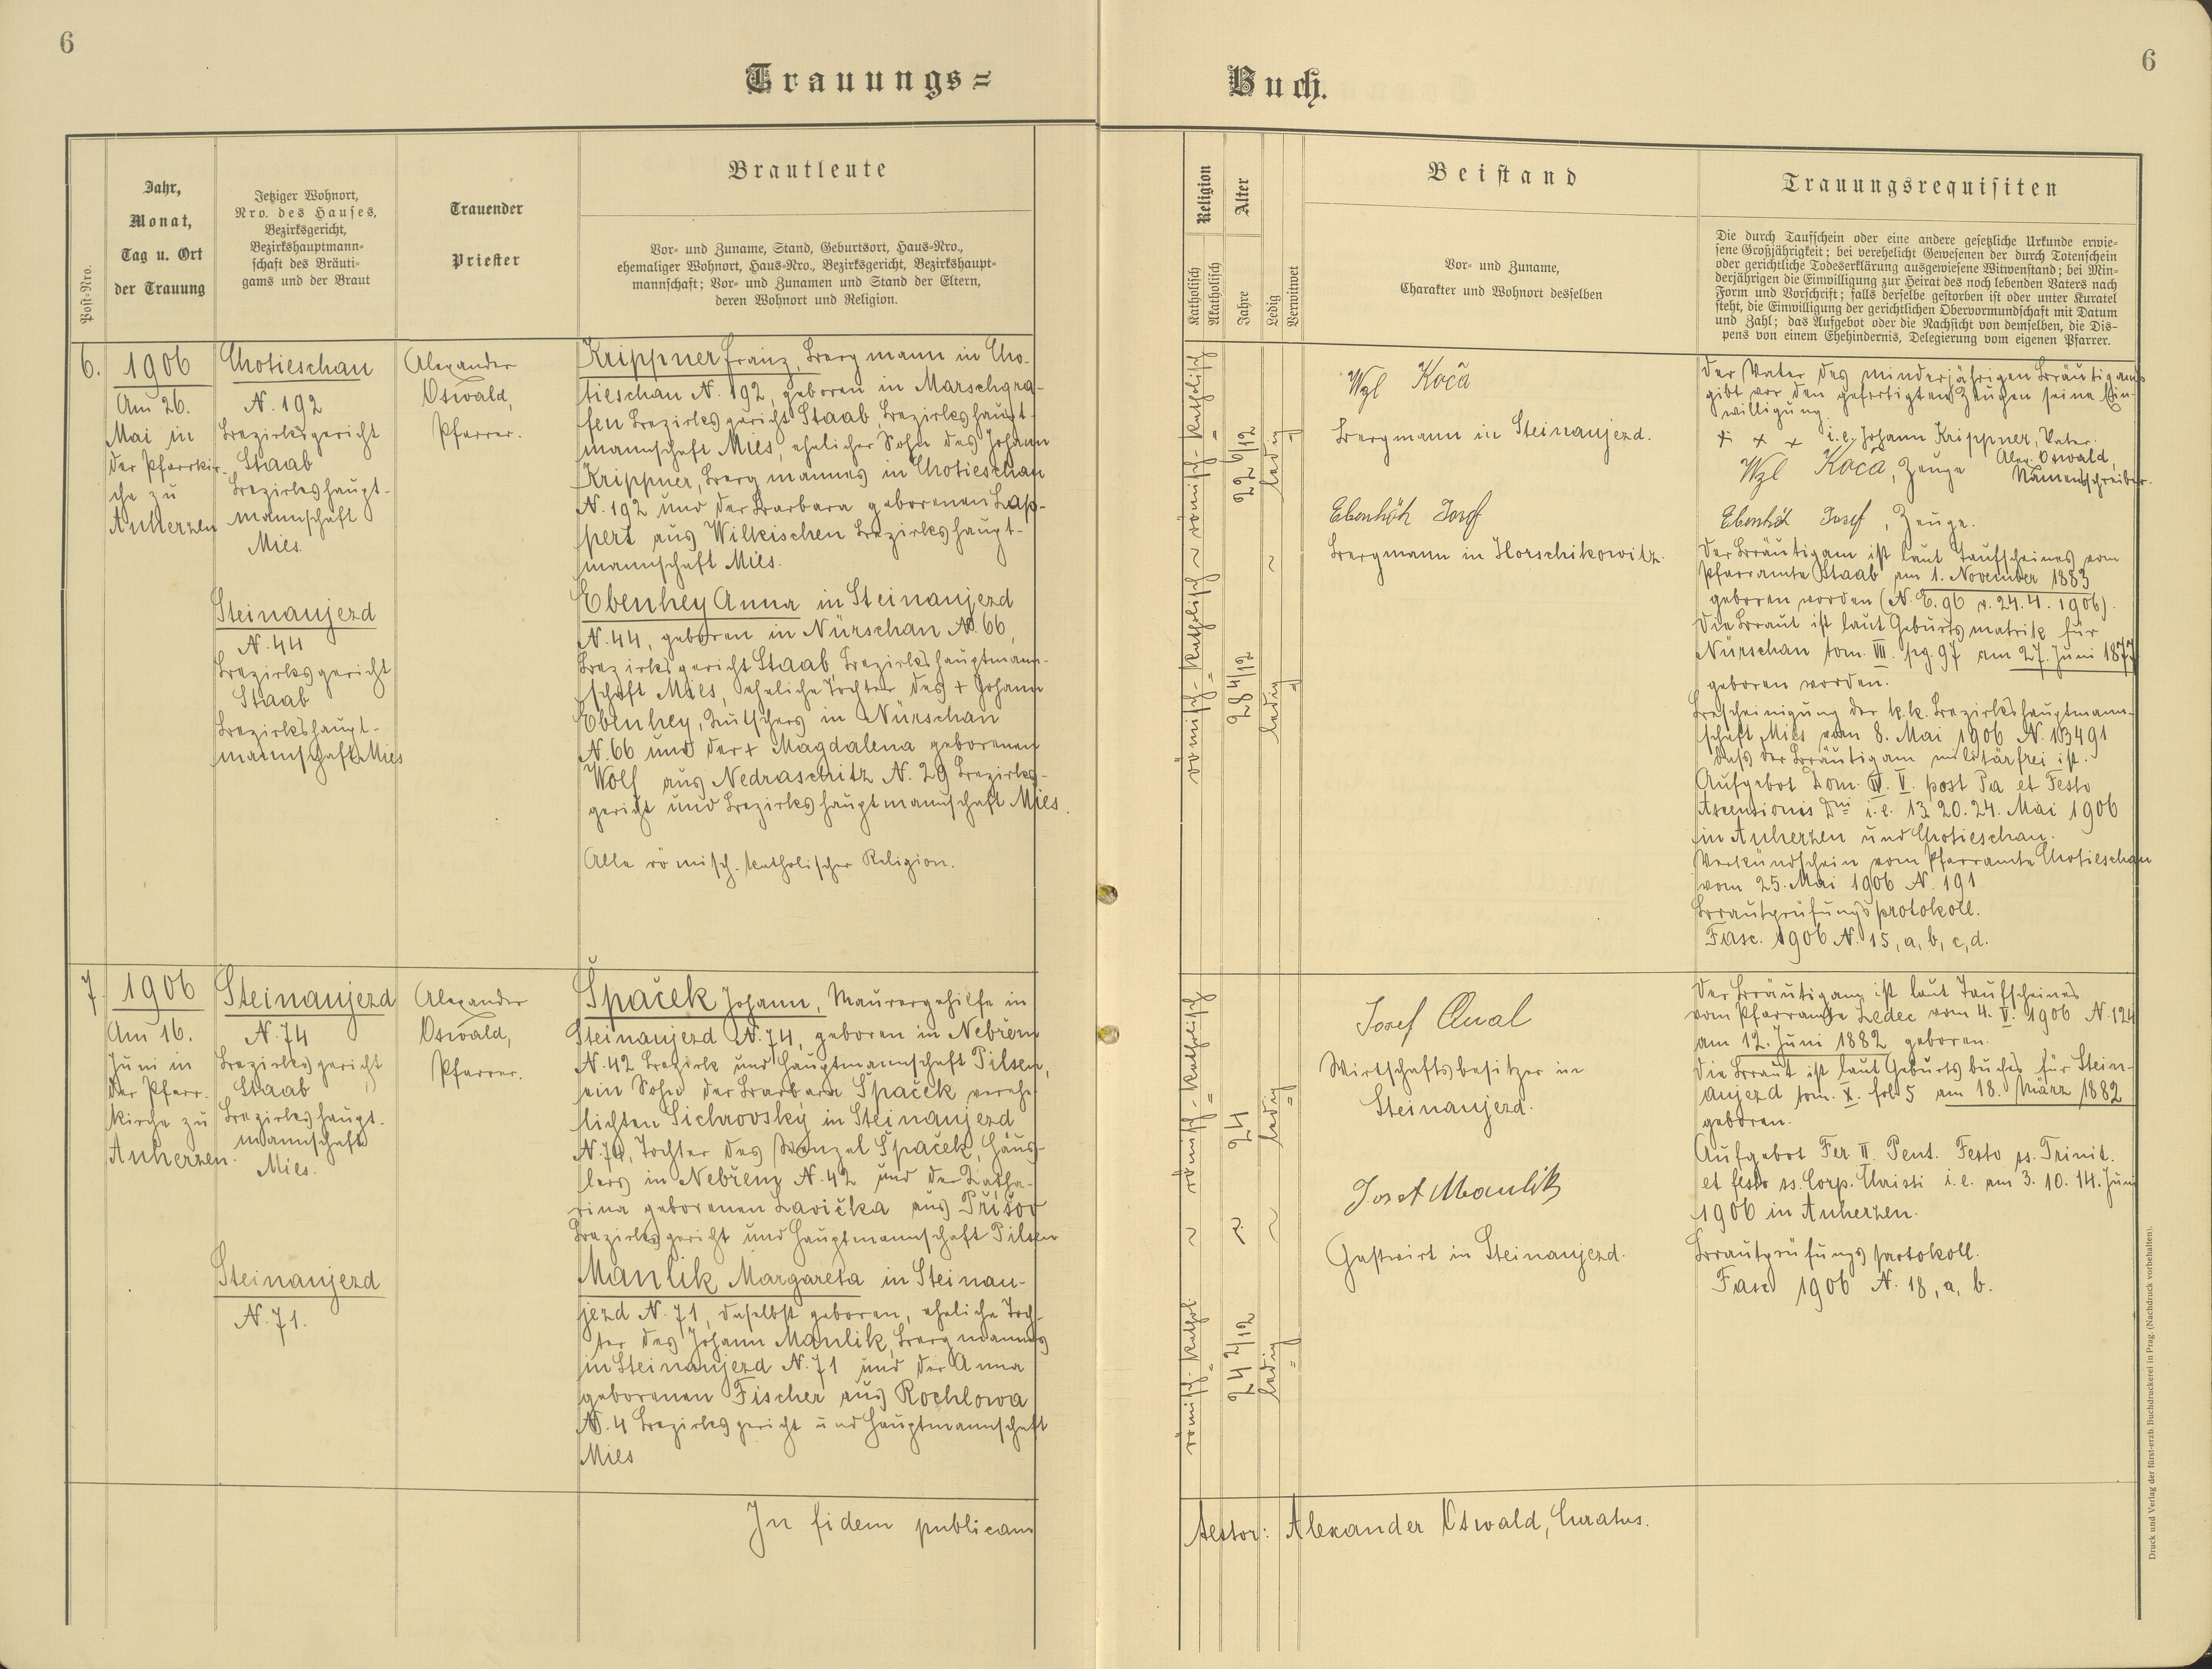 6
Trauungs=
Post-Nro.
Jahr,
Monat,
Tag u. Ort
der Trauung
Jetziger Wohnort,
Nro. des Hauses,
Bezirksgericht,
Bezirkshauptmann-
schaft des Bräuti-
gams und der Braut
Trauender
Priester
Brautleute
Vor- und Zuname, Stand, Geburtsort, Haus-Nro.,
ehemaliger Wohnort, Haus-Nro., Bezirksgericht, Bezirkshaupt-
mannschaft; Vor- und Zunamen und Stand der Eltern,
deren Wohnort und Religion.
6.
1906
Am 26.
Mai in
der Pfarrkir-
che zu
Anherzen
Chotieschau
N. 192
Bezirksgericht
Staab
Bezirkshaupt-
mannschaft
Mies.
Steinaujezd
N. 44
Bezirksgericht
Staab
Bezirkshaupt-
mannschaft Mies
Alexander
Oswald,
Pfarrer.
Krippner Franz, Bergmann in Cho-
tieschau N. 192, geboren in Marschgra-
fen Bezirksgericht Staab, Bezirkshaupt-
mannschaft Mies, ehelicher Sohn des Johann
Krippner, Bergmannes in Chotieschau
N. 192 und der Barbara geborenen Lap-
pert aus Wilkischen Bezirkshaupt-
mannschaft Mies.
Ebenhey Anna in Steinaujezd
N. 44, geboren in Nürschan N. 66,
Bezirksgericht Staab, Bezirkshauptmann-
schaft Mies, eheliche Tochter des + Johann
Ebenhey, Kutschers in Nürschan
N. 66 und der + Magdalena geborenen
Wolf aus Nedraschitz N. 29 Bezirks-
gericht und Bezirkshauptmannschaft Mies.
Alle römisch-katholischer Religion.
7.
1906
Am 16.
Juni in
der Pfarr-
kirche zu
Anherzen.
Steinaujezd
N. 74
Bezirksgericht
Staab
Bezirkshaupt-
mannschaft
Mies.
Steinaujezd
N. 71.
Alexander
Oswald,
Pfarrer.
Špaček Johann, Maurergehilfe in
Steinaujezd N. 74, geboren in Nebřem
N. 42 Bezirk und Hauptmannschaft Pilsen,
ein Sohn der Barbara Špaček verehe-
lichten Sichrovsky in Steinaujezd
N. 74, Tochter des Wenzel Špaček, Häus-
lers in Nebřem N. 42 und der Katha-
rina geborenen Lavička aus Přišov
Bezirksgericht und Hauptmannschaft Pilsen
Manlik Margareta in Steinau-
jezd N. 71, daselbst geboren, eheliche Toch-
ter des Johann Manlik, Bergmannes
in Steinaujezd N. 71 und der Anna
geborenen Fischer aus Rochlowa
N. 4 Bezirksgericht und Hauptmannschaft
Mies
In fidem publicam
6
Buch.
Religion
Katholisch
Akatholisch
Alter
Jahre
Ledig
Verwitwet
Beistand
Vor- und Zuname,
Charakter und Wohnort desselben
Trauungsrequisiten
Die durch Taufschein oder eine andere gesetzliche Urkunde erwie-
sene Großjährigkeit; bei verehelicht Gewesenen der durch Totenschein
oder gerichtliche Todeserklärung ausgewiesene Witwenstand; bei Min-
derjährigen die Einwilligung zur Heirat des noch lebenden Vaters nach
Form und Vorschrift; falls derselbe gestorben ist oder unter Kuratel
steht, die Einwilligung der gerichtlichen Obervormundschaft mit Datum
und Zahl; das Aufgebot oder die Nachsicht von demselben, die Dis-
pens von einem Ehehindernis, Delegierung vom eigenen Pfarrer.
römisch-katholisch ~ römisch-katholisch
22 6/12
28 4/12
ledig
~
ledig
Wzl Koča
Bergmann in Steinaujezd.
Ebenhöh Josef
Bergmann in Horschikowitz.
Der Vater des minderjährigen Bräutigams
gibt vor den gefertigten Zeugen seine Ein-
willigung.
+ x x i. e. Johann Krippner, Vater.
Alex. Oswald,
Wzl Koča, Zeuge
Namensschreiber.
Ebenhöh Josef, Zeuge.
Der Bräutigam ist laut Taufscheines vom
Pfarramte Staab am 1. November 1883
geboren worden (N. E. 96 v. 24. 4. 1906).
Die Braut ist laut Geburtsmatrik für
Nürschan tom. VII. pg. 97 am 27. Juni 1877
geboren worden.
Bescheinigung der k.k. Bezirkshauptmann-
schaft Mies vom 8. Mai 1906 N. 13491
daß der Bräutigam militärfrei ist.
Aufgebot Dom. IV. V. post Pa et Festo
Ascensionis Dni i. e. 13. 20. 24. Mai 1906
in Anherzen und Chotieschau.
Verkündschein vom Pfarramte Chotieschau
vom 25. Mai 1906 N. 191
Brautprüfungsprotokoll.
Fasc. 1906 N. 15, a, b, c, d.
römisch-katholisch ~ römisch-kathol.
24
~
24 2/12
ledig
~
ledig
Josef
Wirtschaftsbesitzer in
Steinaujezd.
Josef Manlik
Gastwirt in Steinaujezd.
Der Bräutigam ist laut Taufscheines
vom Pfarramte Ledec vom 4. V. 1906 N. 124
am 12. Juni 1882 geboren.
Die Braut ist laut Geburtsbuches für Stein-
aujezd tom. X. fol. 5 am 18. März 1882
geboren.
Aufgebot Fer. II. Pent. Festo ss. Trinit.
et festo ss. Corp. Christi i. e. am 3. 10. 14. Juni
1906 in Anherzen.
Brautprüfungsprotokoll.
Fasc 1906 N. 18, a, b.
testor: Alexander Oswald, Curatus.
Druck und Verlag der fürst-erzb. Buchdruckerei in Prag. (Nachdruck vorbehalten).